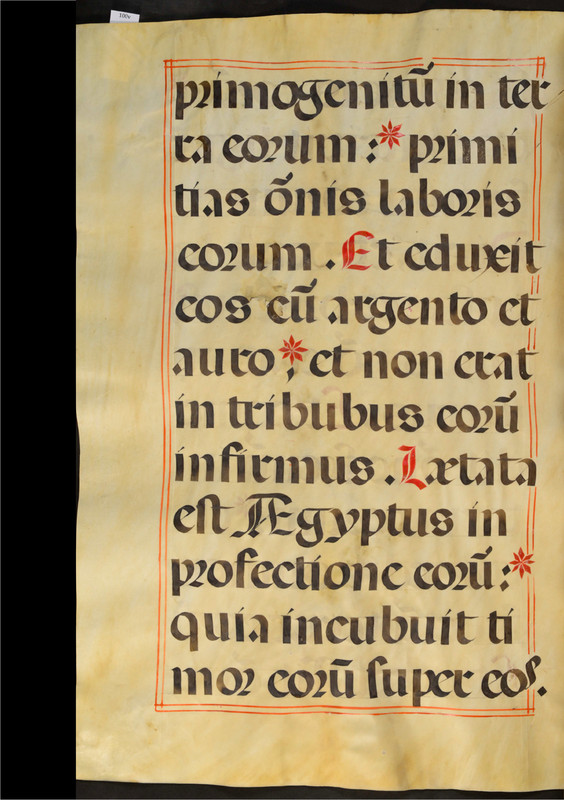 primogenitū in ter
ra eorum :* primi
tias ōnis laboris
eorum . Et eduxit
eos cū argento et
auro ;* et non erat
in tribubus eorū
infirmus . Lætata
est Ægyptus in
profectione eorū :*
quia incubuit ti
mor eorū super eos.